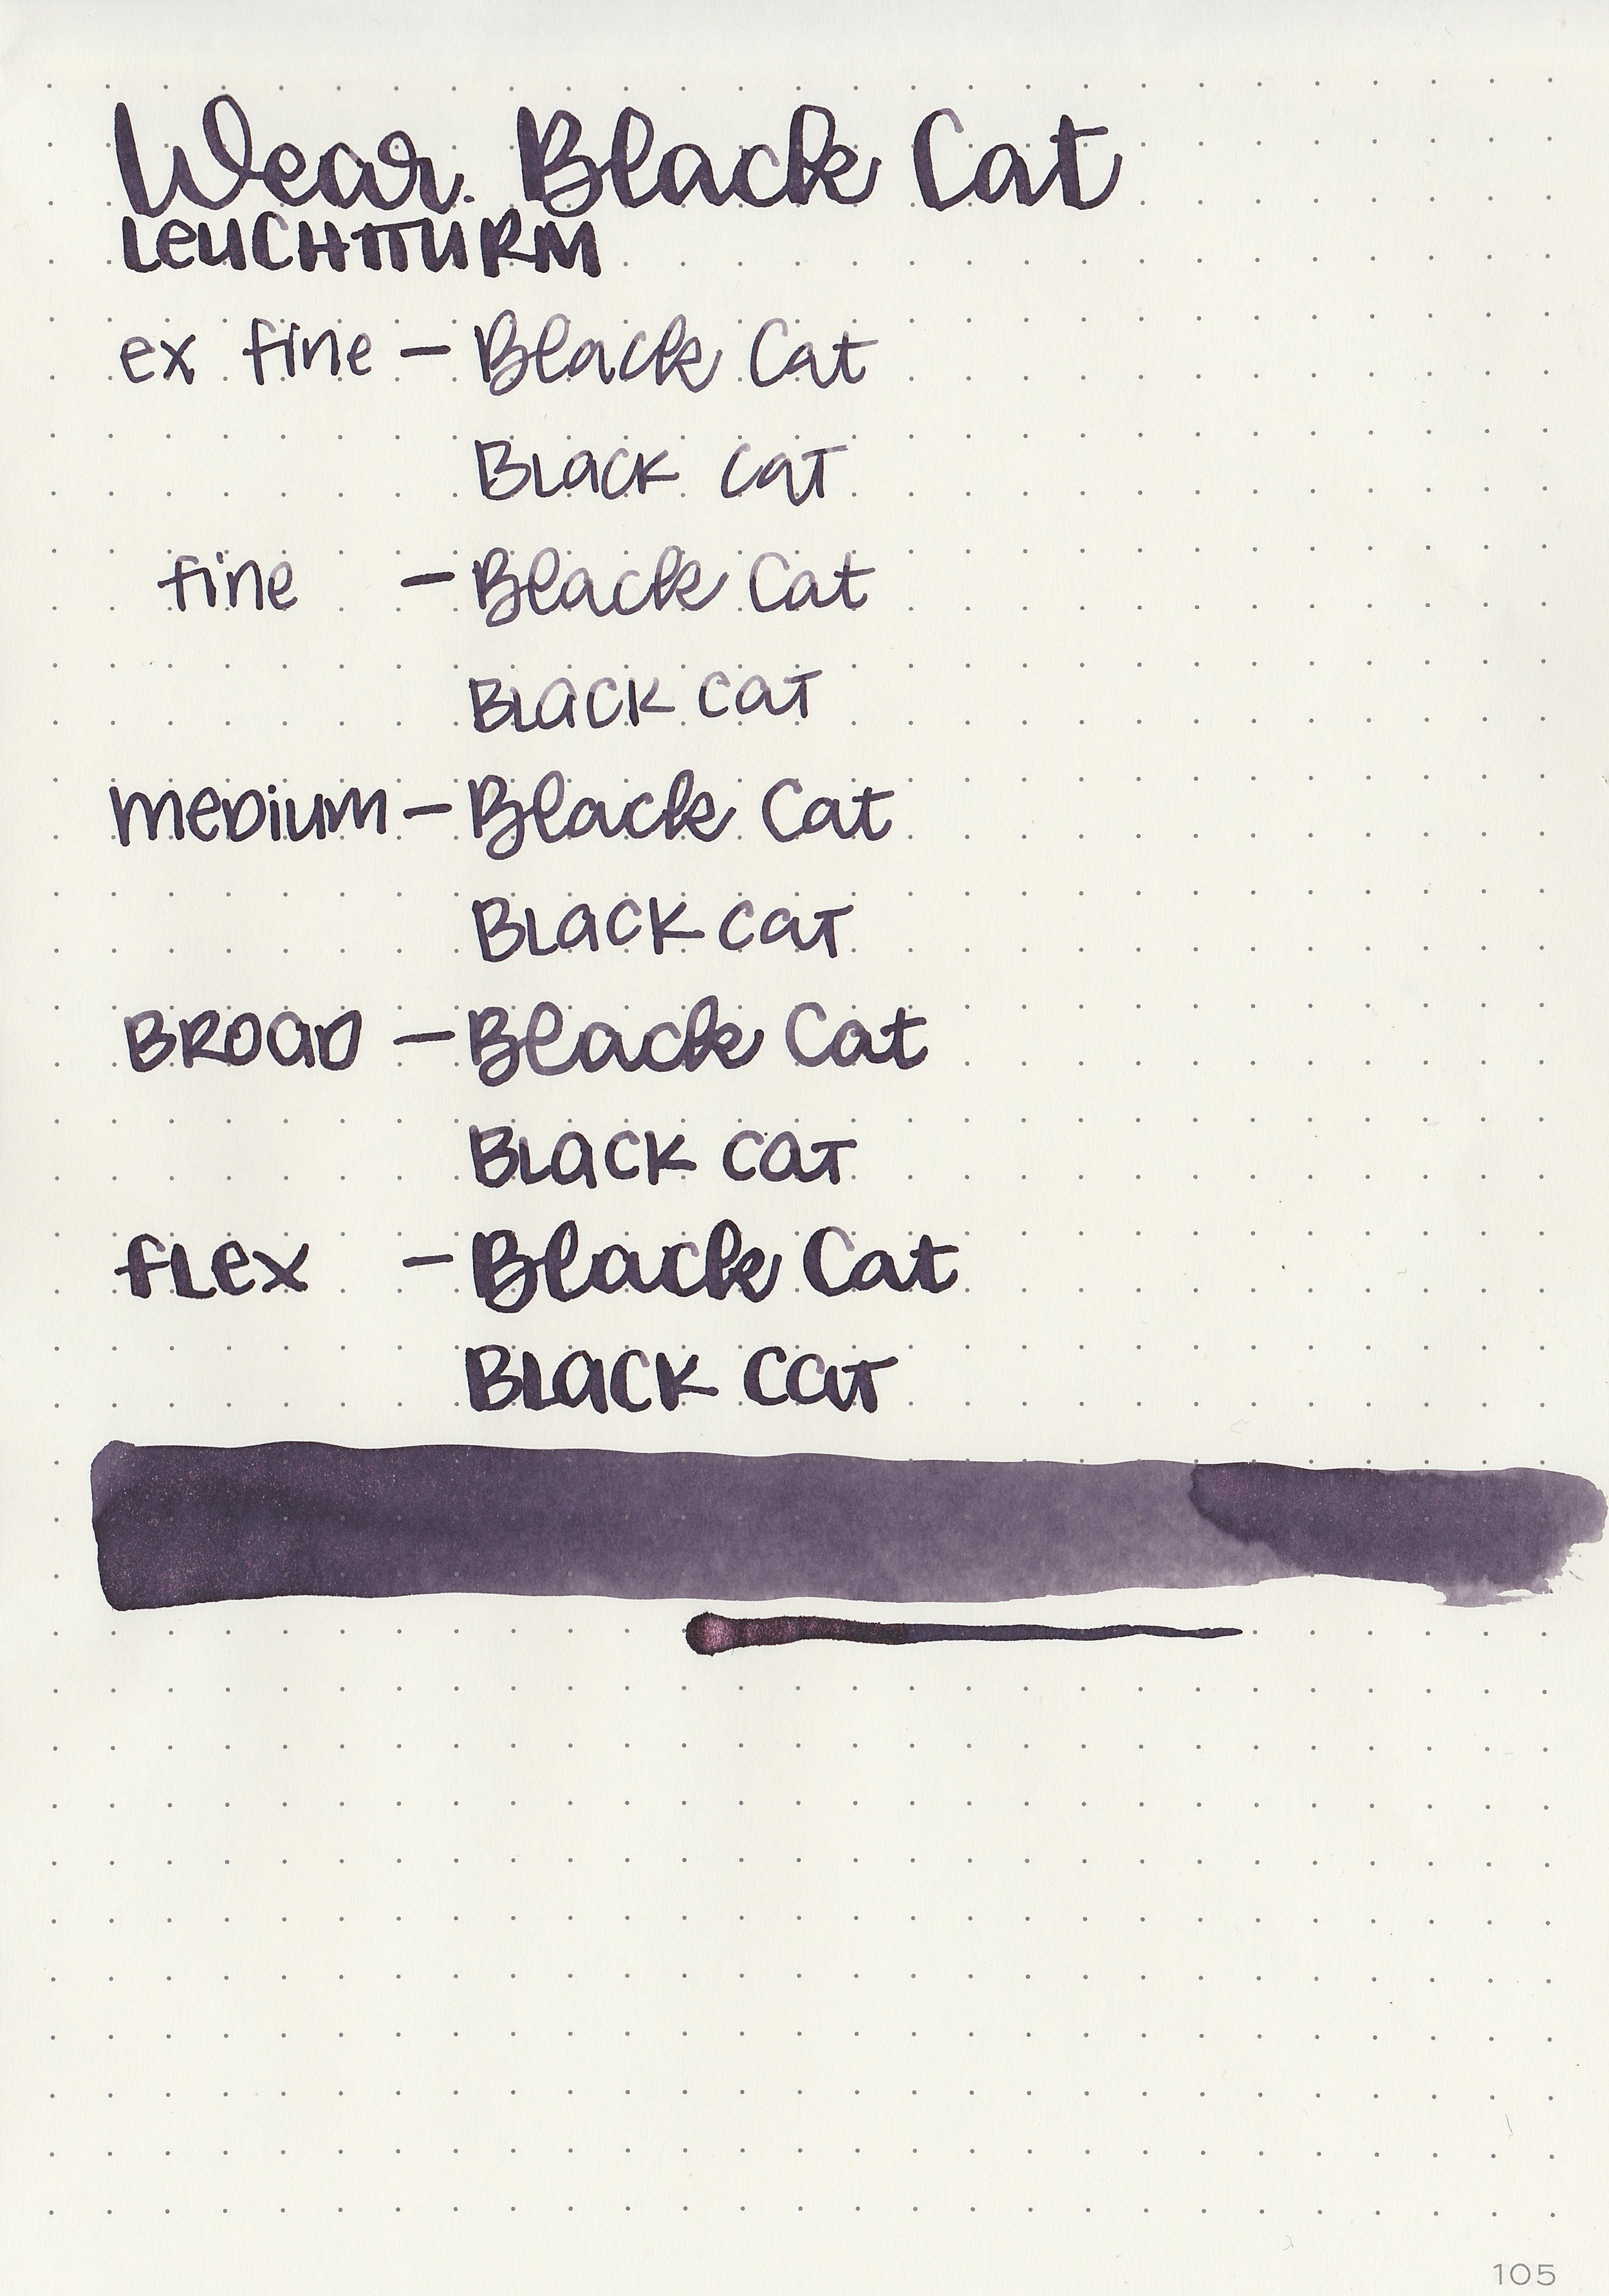 Wear. Black Cat
LEUCHTTURM
ex fine - Black Cat
BLACK CAT
fine - Black Cat
BLACK CAT
MEDIUM - Black Cat
BLACK CAT
BROAD - Black Cat
BLACK CAT
FLEX - Black Cat
BLACK CAT
105